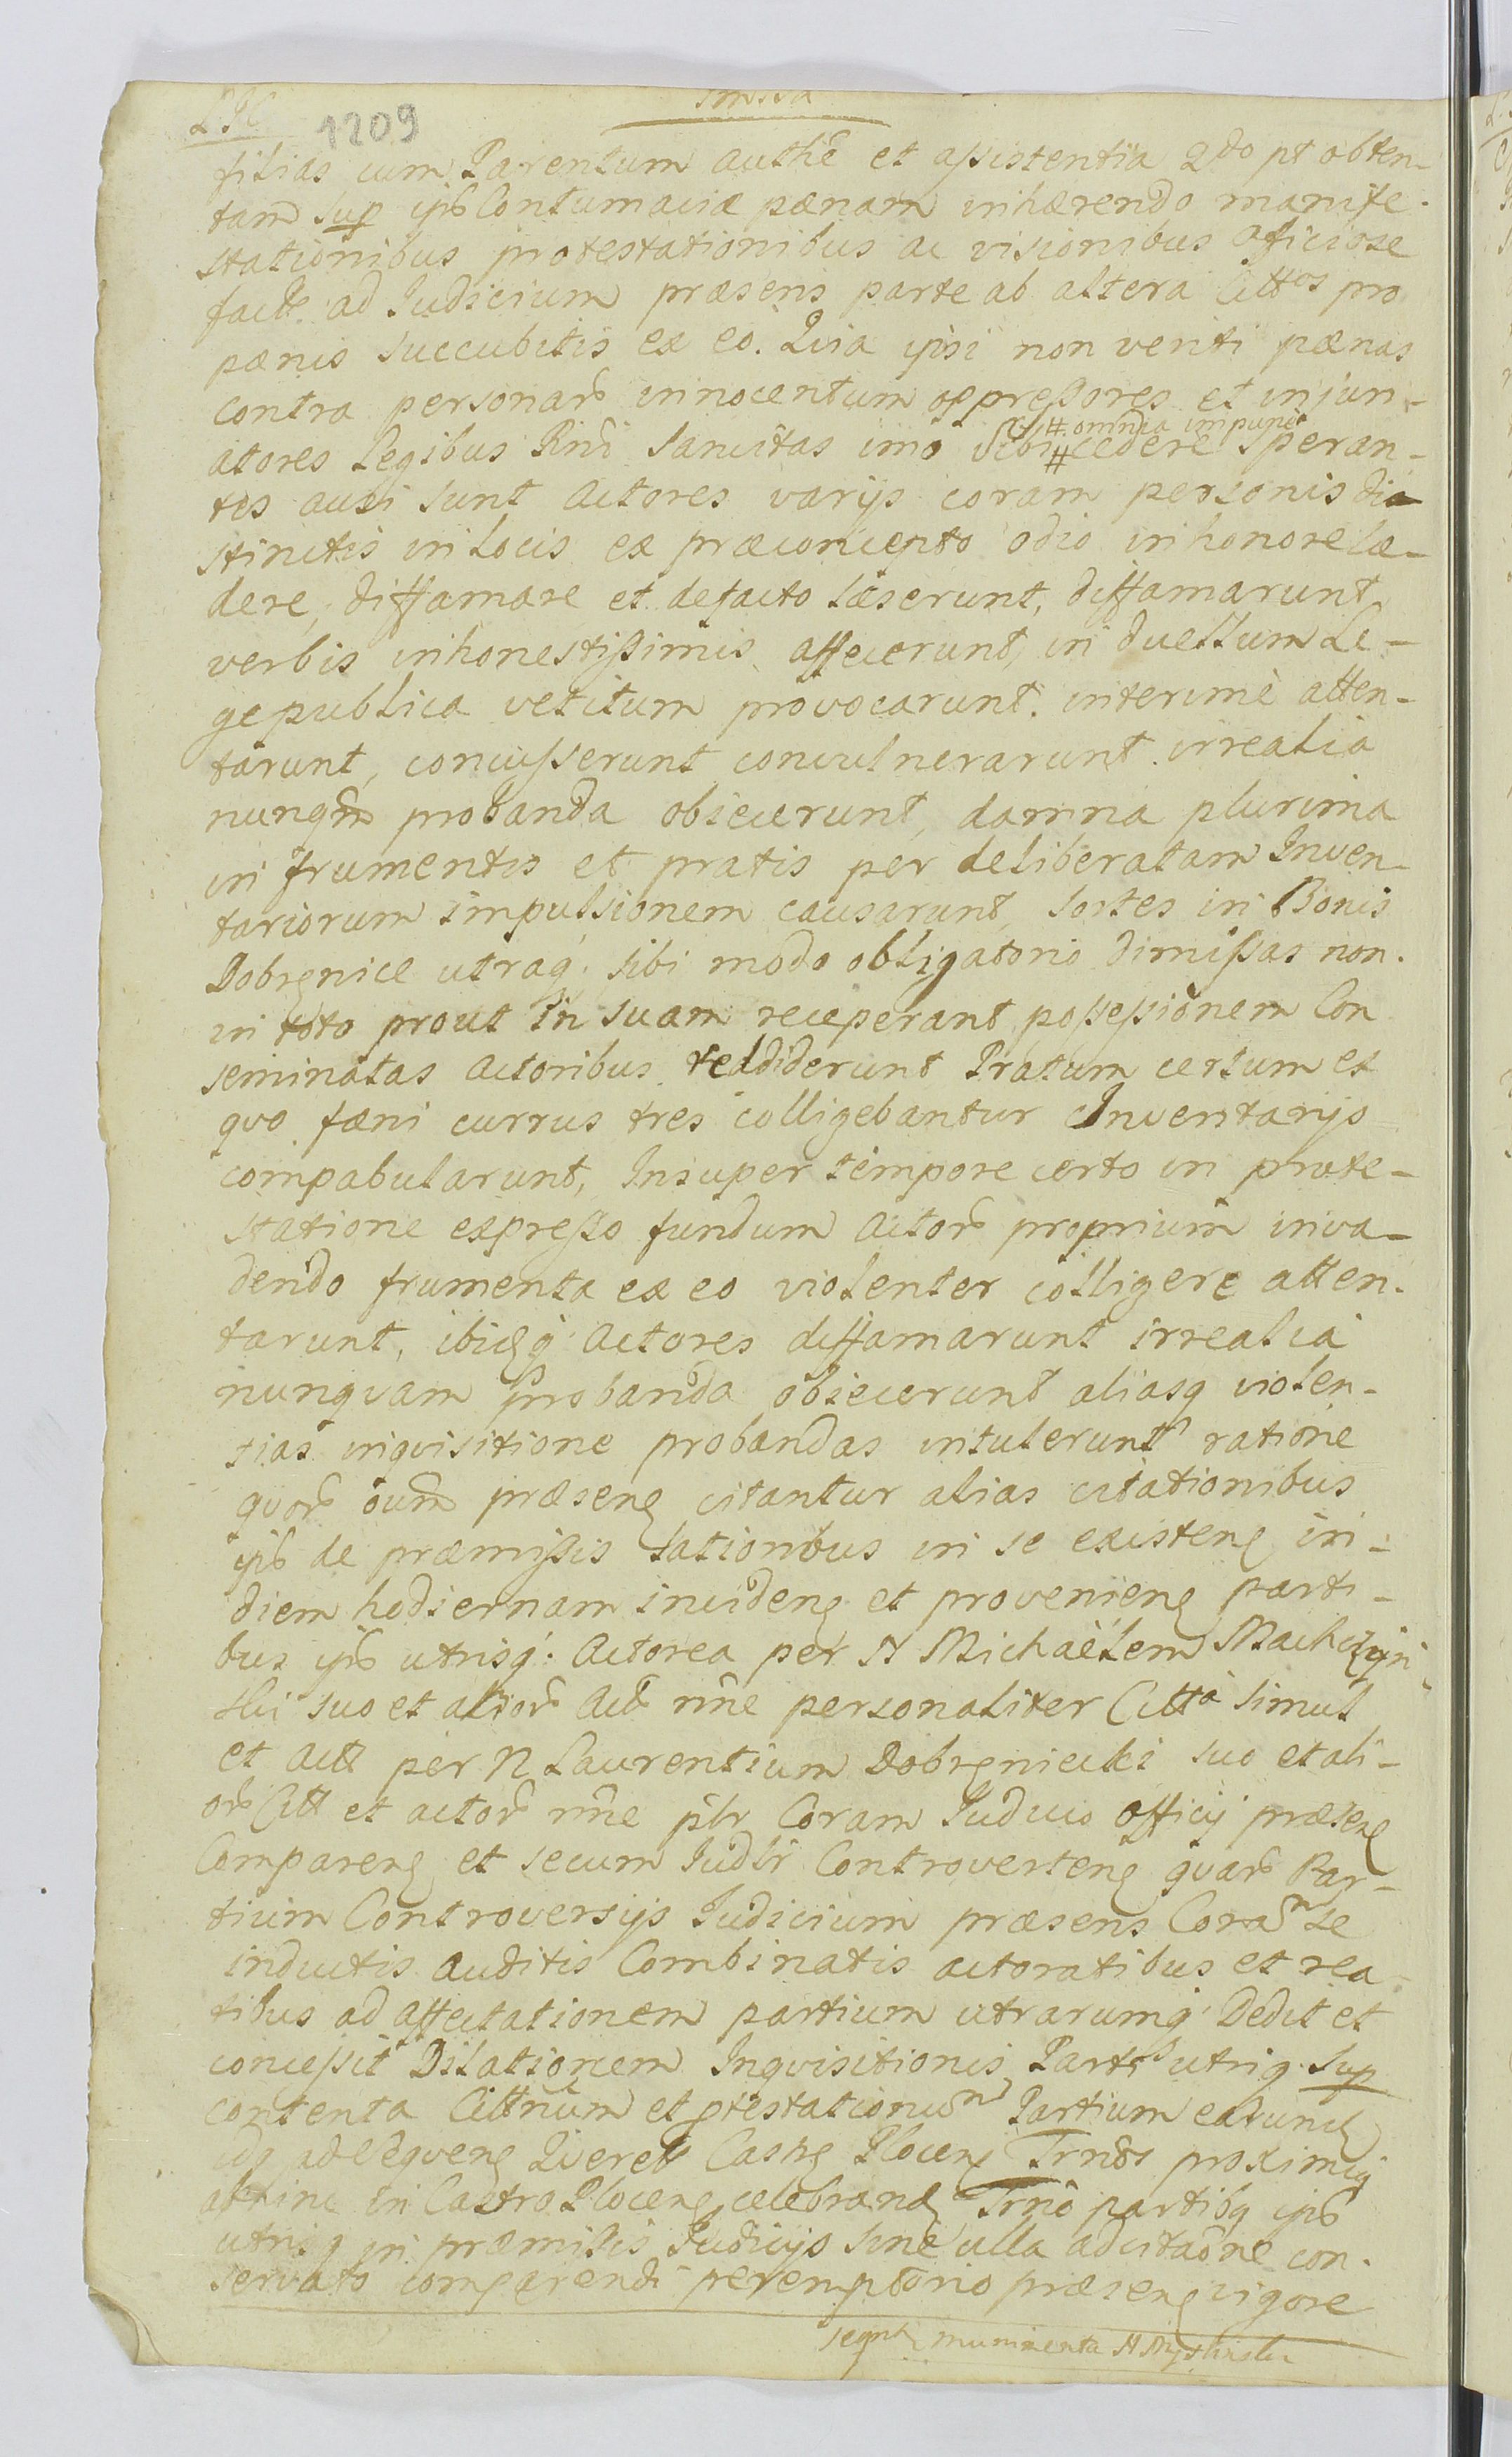 1209
filias cum Parentum authē et assistentia 2do pt obten-
tam sup ipōs Contumaciæ pænam inhærendo manife-
stationibus protestationibus ac visionibus officiose
factis ad Judicium præsens parte ab altera Cittos pro
pænis succubitis ex eo. Quia ipsi non veriti pænas
contra personarō innocentum oppressores et injuri-
# omnia impune
atores Legibus Rnī sancitas imo sibi # cedere speran-
tes ausi sunt Actores varijs coram personis di
stinctis in locis ex præconcepto odio in honore læ-
dere, diffamare et defacto læserunt, diffamarunt
verbis inhonestissimis affecerunt, in duellum Le-
ge publica vetitum provocarunt. interimè atten-
tarunt, concusserunt convulnerarunt. irrealia
nunqm̄ probanda obiecerunt, damna plurima
in frumentis et pratis per deliberatam Inven-
tariorum impulsionem causarunt, sortes in Bonis
Dobrzenice utraq; sibi modo obligatorio dimissas non
in toto prout in suam receperant possessionem Con
seminatas Actoribus reddiderunt Pratum certum ex
quo fæni currus tres colligebantur Inventarijs
compabularunt, Insuper tempore certo in prote-
statione expresso fundum Actorō proprium inva-
dendo frumenta ex eo violenter colligere atten-
tarunt, ibidq; Actores diffamarunt irrealia
nunquam probanda obiecerunt aliasq violen-
tias inquisitione probandas intulerunt ratione
quorō oūm præsenȩ citantur alias citationibus
ipōs de præmissis lationibus in se existenȩ in
diem hodiernam incidenȩ et provenienȩ parti-
bus ipōs utrisq: Actorea per N Michaëlem Machczyn
ski suo et aliorō Actō nn̄e personaliter Citta simul
et Actt per N Laurentium Dobrzeniecki suo et ali-
orō Citt et actorō nn̄e pl̄r Coram Judicio officij præsenȩ
Comparenȩ et secum Judlr Controvertenȩ quarō Par-
tium Controversijs Judicium præsens Coram se
inductis auditis Combinatis actoratibus et rea
tibus ad affectationem partium utrarumq; Dedit et
concessit Dilationem Inquisitionis Parti utriq; sup
contenta Cittnūm et ptestationum Partium earund
ad Seqvenȩ Querelō Castrȩ Plocenȩ Trnōs proximiq
abhinc in Castro Plocenȩ celebrandȩ Trn̄o partibq ipōs
utrisq in præmissis Judicijs sine ulla adcitaōne con-
servato comparendi peremptorio præsenȩ vigore
munimenta